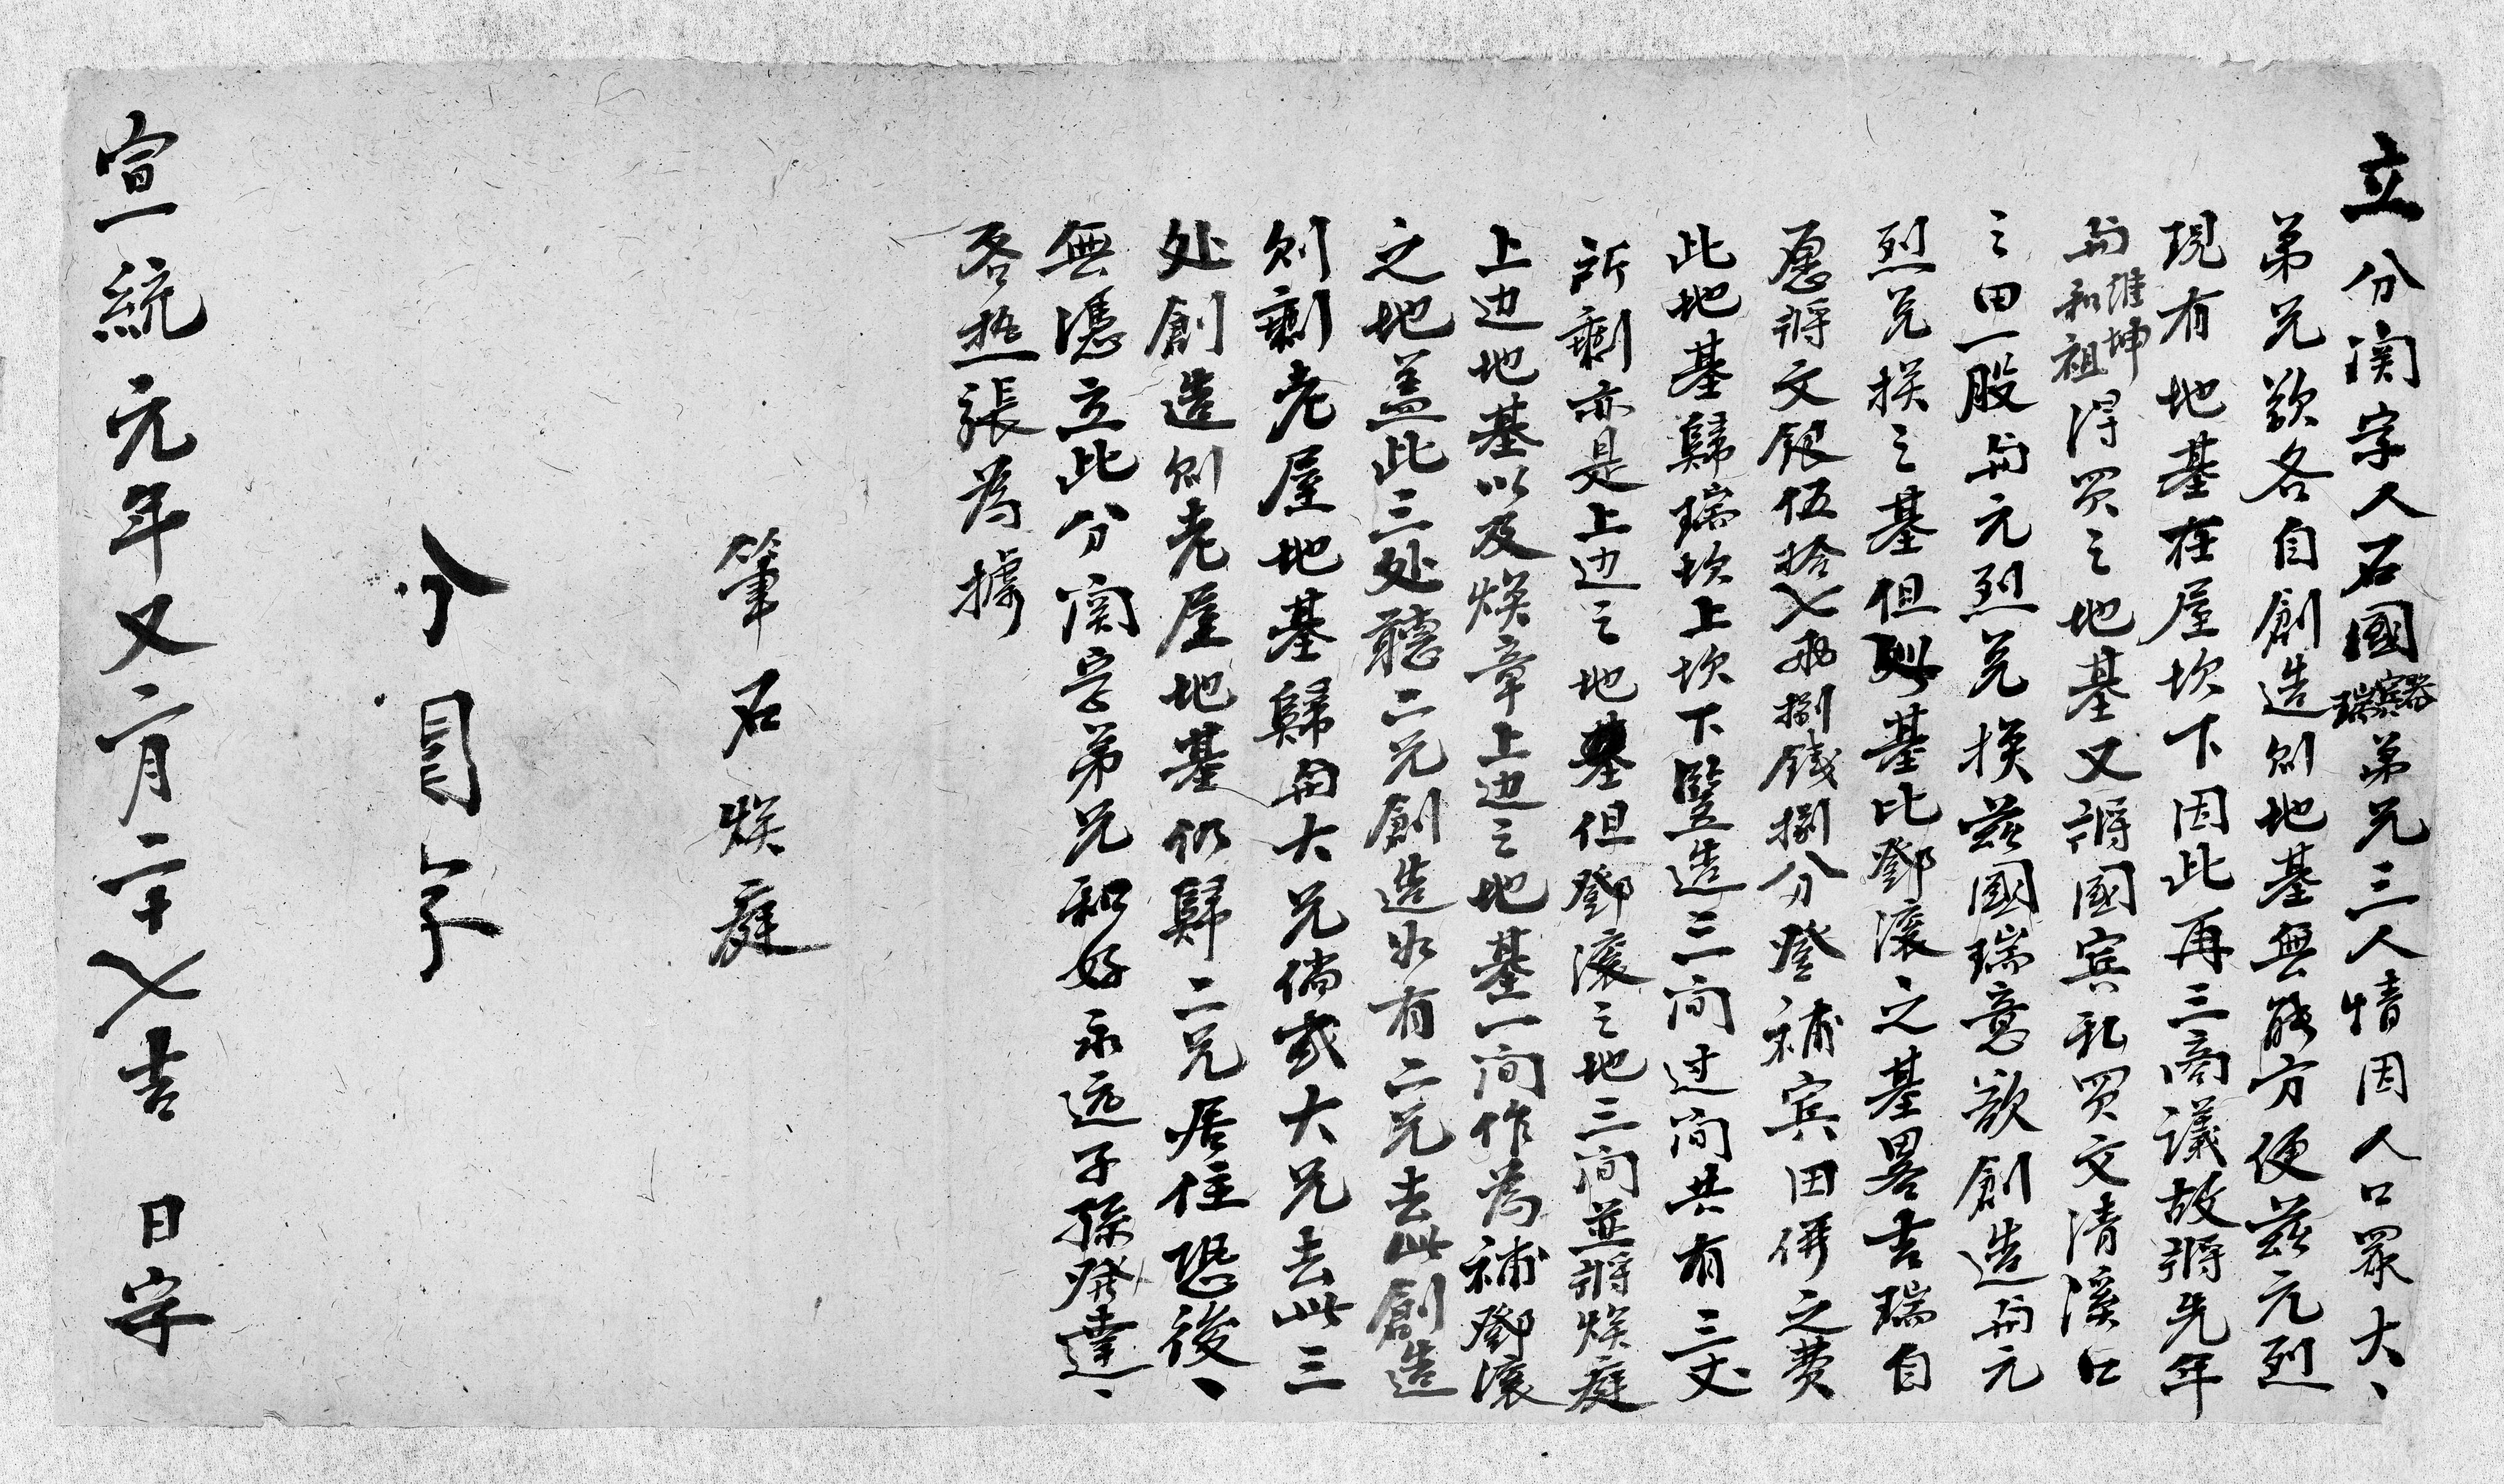 立分関字人石國器賓瑞弟兄三人情因人口眾大、
弟兄欲各自創造則地基無能方便兹元烈
現有地基在屋坎下因此再三商議故將先年
與維坤和祖得買之地基又將國賓私買交清溪口
之田一股與元烈兑换兹國瑞意欲創造與元
烈兑換之基但此基比鄧滾之基畧吉瑞自
愿將文銀伍拾七両捌錢捌分登補賓田併之費
此地基歸瑞坎上坎下豎造三间过间共有三丈
所剩亦是上边之地基但鄧滾之地三间並將煥庭
上边地基以及煥章上边之地基一间作為補鄧滾
之地盖此三处聽二兄創造如有二兄去此創造
則剩老屋地基歸與大兄倘或大兄去此三
处創造則老屋地基仍歸二兄居住恐後、
無憑立此分関字弟兄和好永远子孫發達、
各执一張為據
筆石煥庭
分関字
宣統元年又二月二十七吉日字